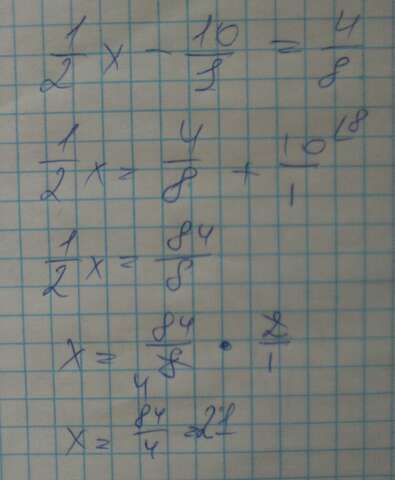 1/2 x - 10/1 = 4/8
1/2 x = 4/8 + 10/1 18
1/2 x = 84/8
x = 84/8 · 2/1
4
x = 84/4 = 21